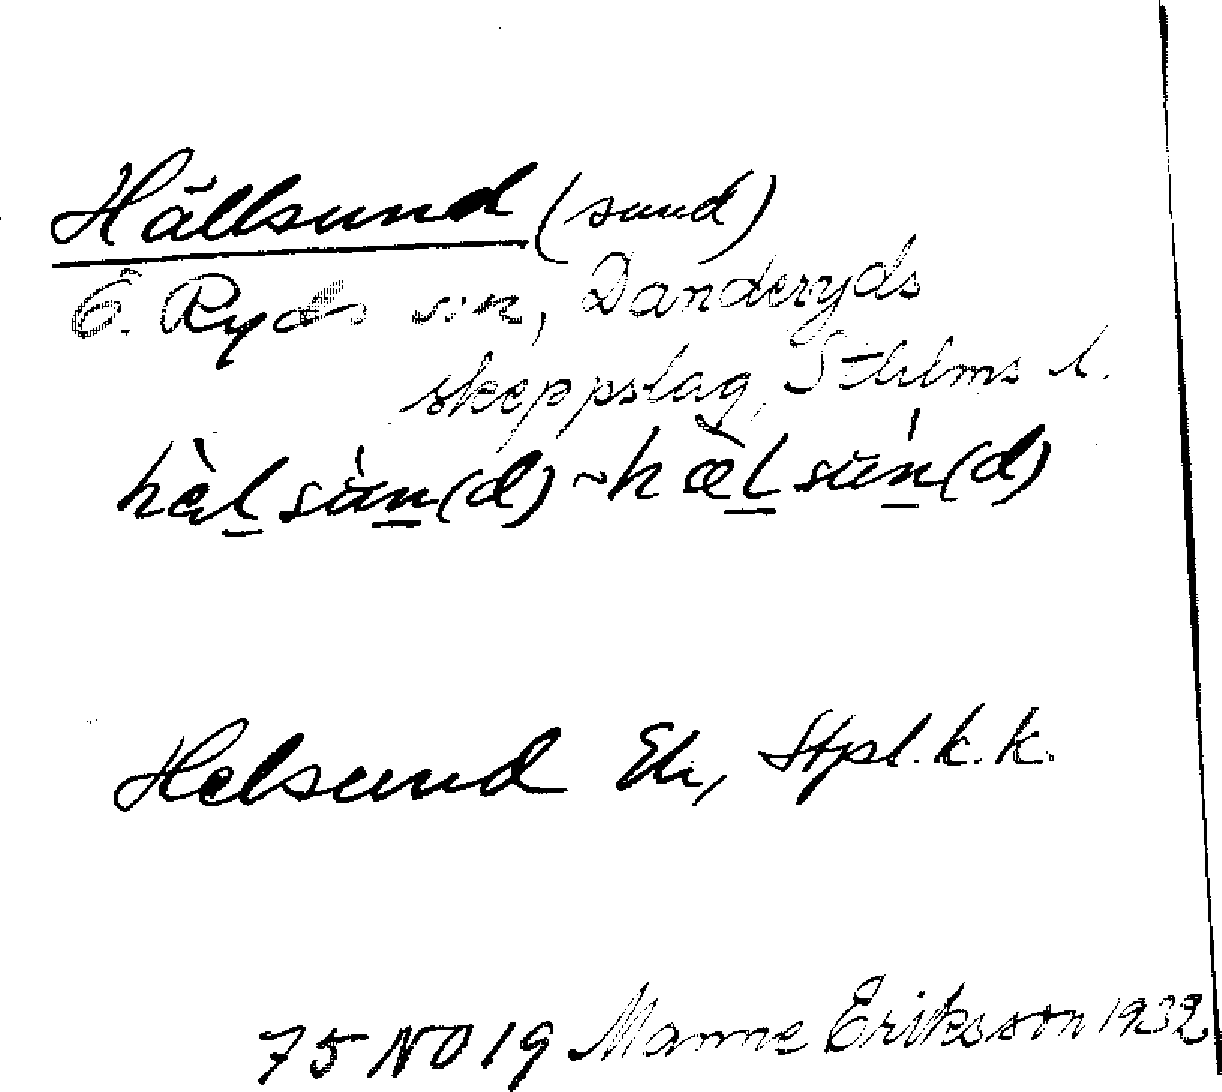 Hällsund (sund)
Ö. Ryds sn, Danderyds
skeppslag, Sthlms l.
hèl sùn(d) ~ hæ̀l sún(d)
Helsund Ek, Stpl.k.k.
75 NO 19 Manne Eriksson 1932